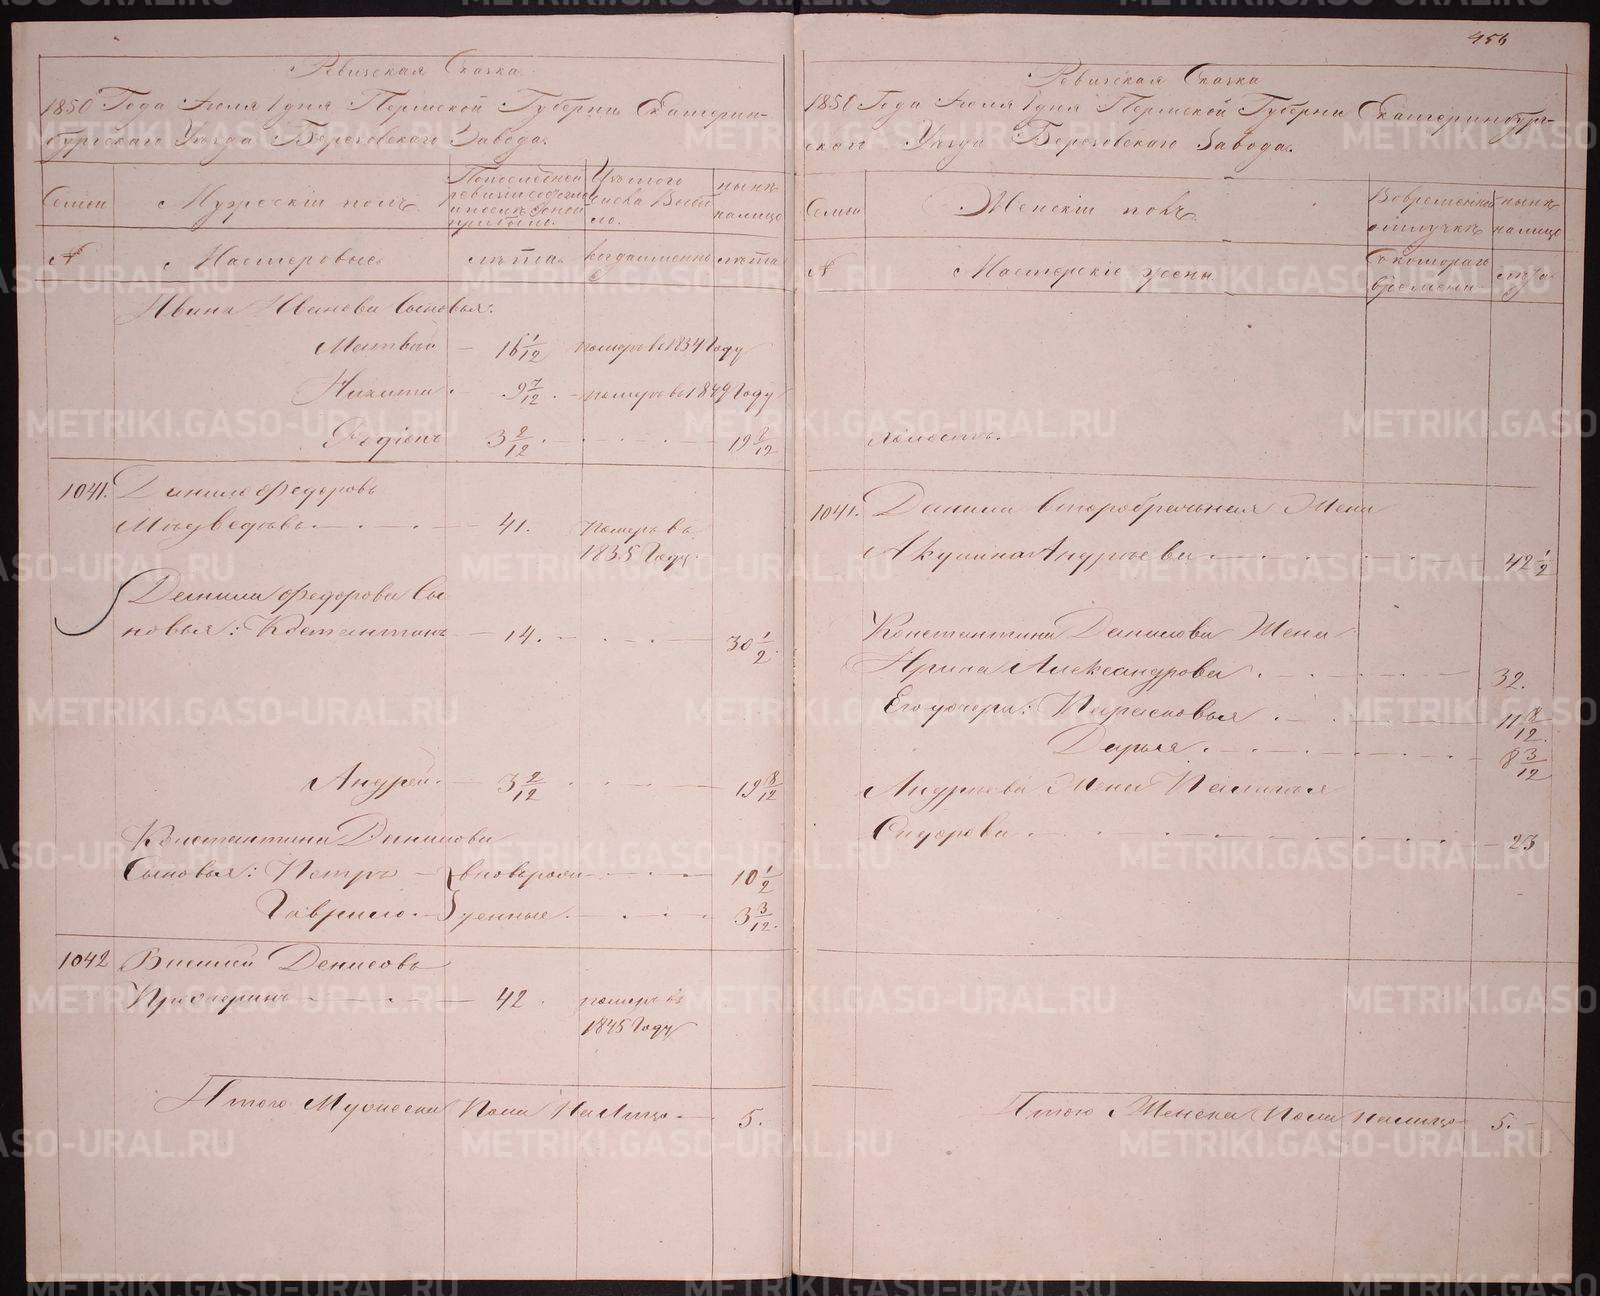 Ревизская Сказка
1850 Года Июля 1 дня Пермской Губерніи Екатерин-
бургскаго Уѣзда Березовскаго Завода.
Семьи
Мужескій полъ.
По последней ревизіи состояло и после оной прибыло.
Изъ того числа Выбыло.
нынѣ налицо
№
Мастеровые
лѣта
когда именно
лѣта
Ивана Иванова Сыновья:
Матвѣй — 16 1/12 померъ в 1834 Году
Никита — 9 7/12 — померъ в 1849 Году
Родіонъ 3 2/12 — 19 8/12
1041. Данило Федоровъ
Мѣдведевъ — 41. Померъ въ
1835 Году.
Данилы Федорова Сы
новья: Константинъ — 14. — 30 1/2
Андрей — 3 2/12 — 19 8/12
Константина Данилова
Сыновья: Петръ — вновьрож — 10 1/2
Гаврило — денные — 3 3/12
1042 Василей Денисовъ
42 померъ въ
1845 Году
Итого Мужеска Пола На Лицо — 5.
456
Ревизская Сказка
1850 Года Июля 1 дня Пермской Губерніи Екатеринбург-
скаго Уѣзда Березовскаго Завода.
Семьи
Женскій полъ.
Во временной отлучкѣ
нынѣ налицо
№
Мастерскіе жены
Съ котораго времени
лѣта
холостъ.
1041. Данилы второбрачьная Жена
Акулина Андреева — 42 1/2
Константина Данилова Жена
Ирина Александрова — 32.
Его дочери: Парасковья — 11 8/12
Дарья — 8 3/12
Андреева Жена Палагея
Сидорова — 23
Итого Женска Пола налицо 5. —
METRIKI.GASO-URAL.RU